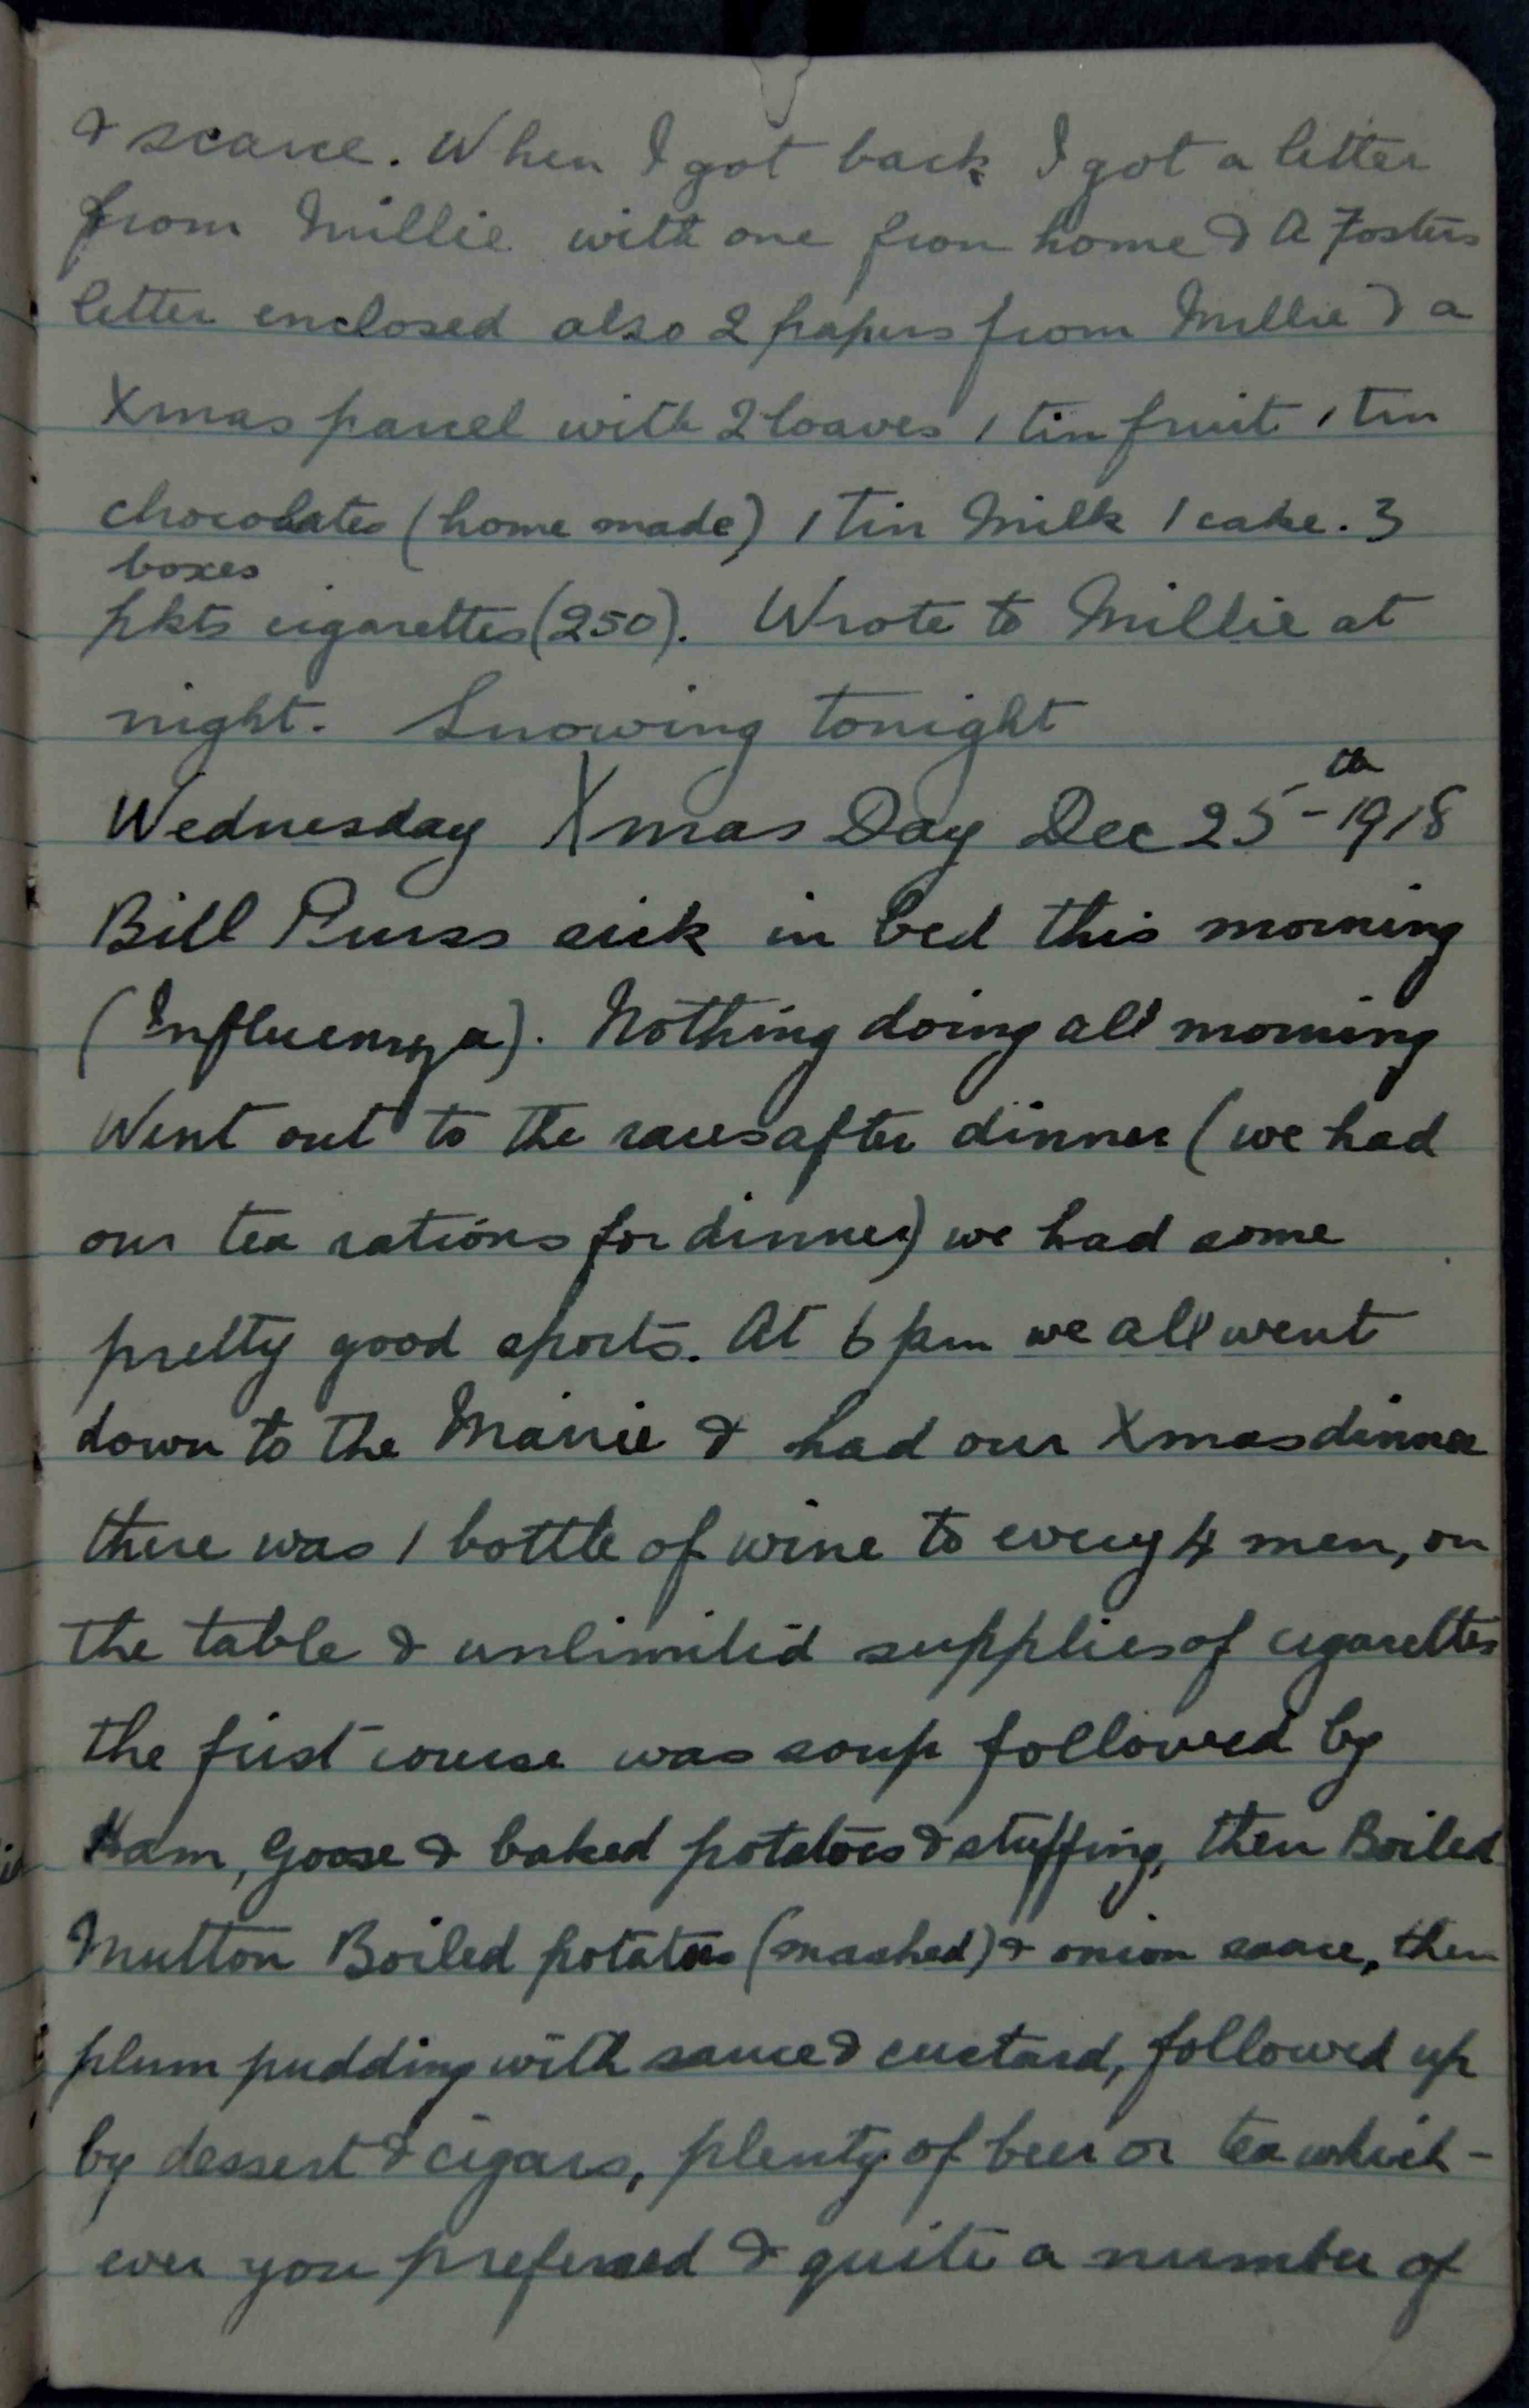 & scarce. When I got back I got a letter
from Millie with one from home & A Fosters
letter enclosed also 2 papers from Millie & a
Xmas parcel with 2 loaves 1 tin fruit 1 tin
chocolates (home made) 1 Tin Milk 1 cake. 3
boxes
pkts cigarettes (250). Wrote to Millie at
night. Snowing tonight
Wednesday Xmas Day Dec 25th 1918
Bill sick in bed this morning
(Influenza). Nothing doing all morning
Went out to the races after dinner (we had
our tea rations for dinner) we had some
pretty good sports. At 6 pm we all went
down to the Mairie & had our Xmas dinner
there was 1 bottle of wine to every 4 men, on
the table & unlimited supplies of cigarettes
the first course was soup followed by
Ham, Goose & baked potatoes & stuffing, then Boiled
Mutton Boiled potatoes (mashed) & onion sauce, then
plum pudding with sauce & custard, followed up
by dessert & cigars, plenty of beer or tea which-
ever you preferred & quite a number of